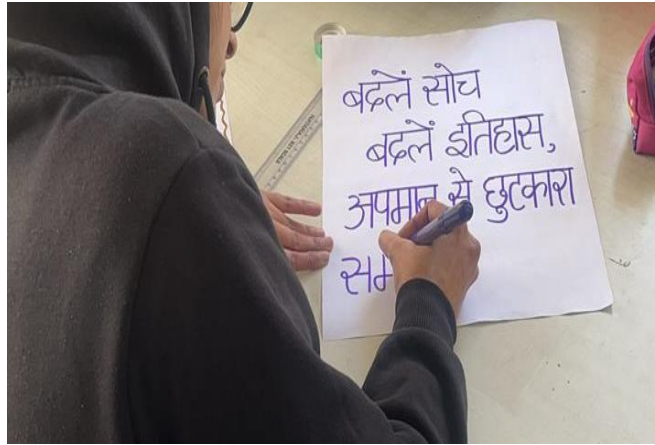 बदलें सोच
बदलें इतिहास,
अपमान से छुटकारा